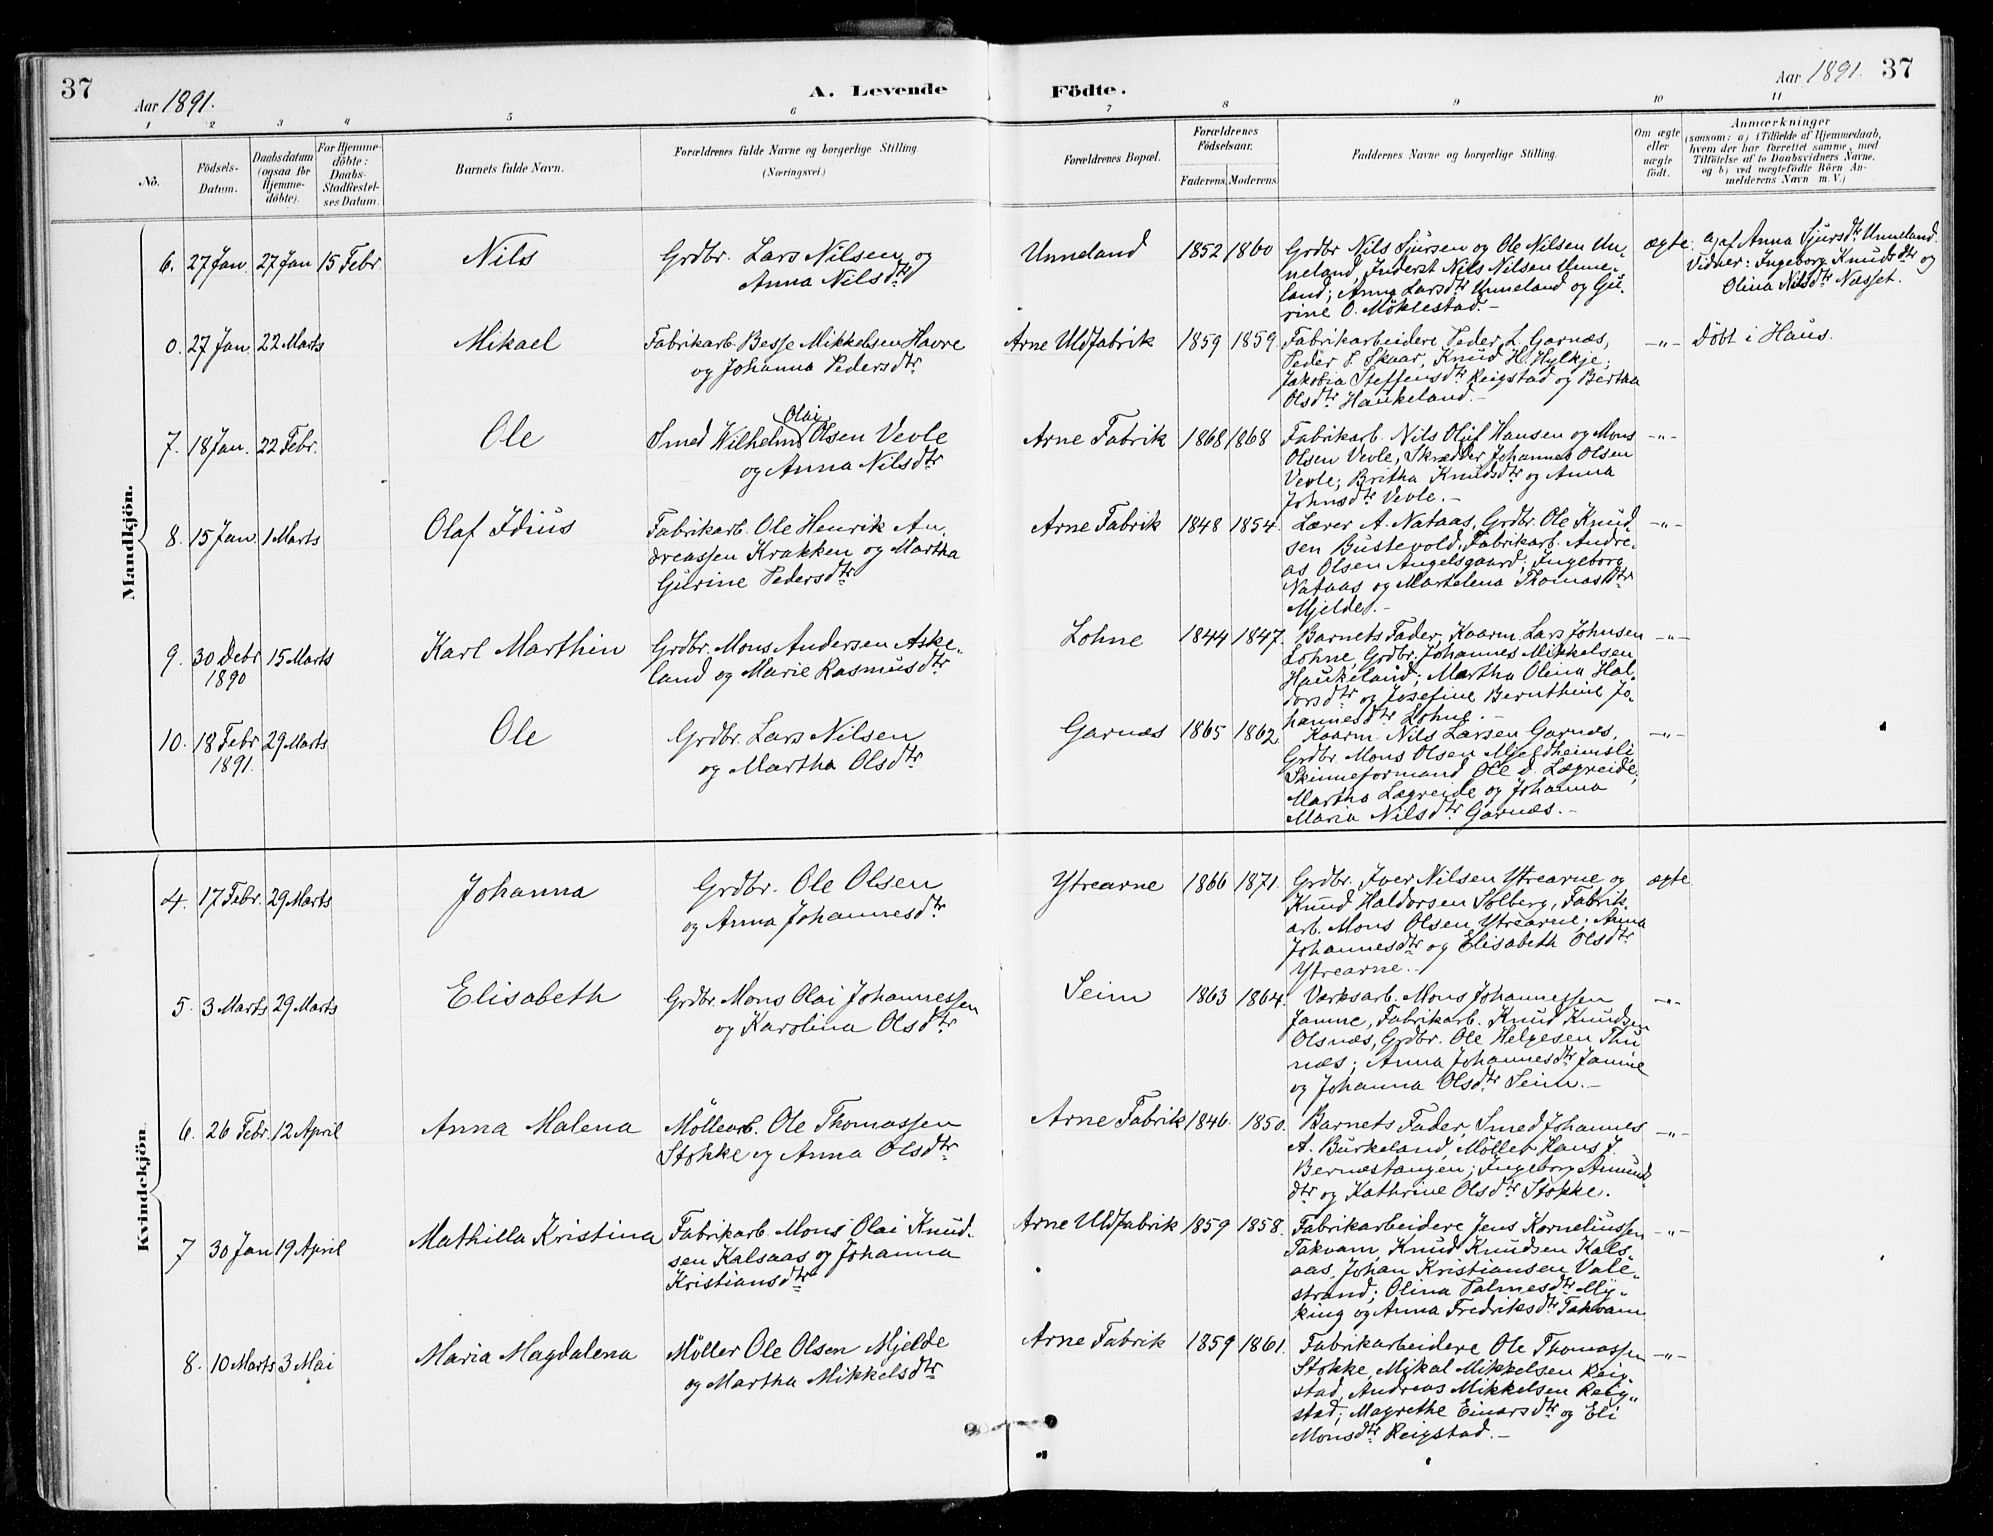 37
Aar 1891.
A. Levende Födte.
Aar 1891. 37
1 2 3 4 5 6 7 8 9 10 11
No.
Födsels-Datum.
Daabsdatum (ogsaa for Hjemme-döbte).
For Hjemme-döbte: Daabs-Stadfæstel-ses Datum.
Barnets fulde Navn.
Forældrenes fulde Navne og borgerlige Stilling.
(Næringsvei.)
Forældrenes Bopæl.
Forældrenes Födselsaar.
Faderens. Moderens.
Faddernes Navne og borgerlige Stilling.
Om ægte eller uægte födt.
Anmærkninger
(saasom: a) i Tilfælde af Hjemmedaab, hvem der har forrettet samme, med Tilföielse af to Daabsvidners Navne, og b) ved uægtefödte Börn An-melderens Navn m. V.)
Mandkjön.
6. 27 Jan 27 Jan 15 Febr
Nils
Grdbr. Lars Nilsen og
Anna Nilsdtr
Unneland
1852 1860
Grdbr Nils Sjursen og Ole Nilsen Un-
neland, Inderst Nils Nilsen Unne-
land; Anna Larsdtr Unneland og Gu-
rine O. Möklestad.-
ægte.
a) af Anna Sjursdtr Unneland.
Vidner: Ingeborg Knudsdtr og
Olina Nilsdtr Næsset.
0. 27 Jan. 22 Marts
Mikael
Fabrikarb. Besse Mikkelsen Havre
og Johanna Pedersdtr
Arne Uldfabrik
1859 1859.
Fabrikarbeidere Peder L. Garnæs,
Peder P. Skaar, Knud H. Hylkje;
Jakobia Steffensdtr Reigstad og Bertha
Olsdtr Haukeland.-
-"-
Döbt i Haus.
7. 18 Jan. 22 Febr.
Ole
Smed Wilhelm Olai Olsen Vevle
og Anna Nilsdtr
Arne Fabrik
1868 1868
Fabrikarb. Nils Oluf Hansen og Mons
Olsen Vevle, Skrædder Johannes Olsen
Vevle; Britha Knudsdtr og Anna
Johnsdtr Vevle.-
-"-
8. 15 Jan. 1 Marts
Olaf Idius
Fabrikarb. Ole Henrik An-
dreassen Krakken og Martha
Gurine Pedersdtr
Arne Fabrik
1848 1854.
Lærer A. Nataas, Grdbr. Ole Knud-
sen Bustevold, Fabrikarb. Andre-
as Olsen Angelsgaard; Ingeborg
Nataas og Martelena Thomasdtr
Mjelde.-
-"-
9. 30 Debr 1890 15 Marts
Karl Marthin
Grdbr. Mons Andersen Aske-
land og Marie Rasmusdtr
Lohne
1844 1847.
Barnets Fader, Kaarm. Lars Johnsen
Lohne, Grdbr. Johannes Mikkelsen
Haukeland; Martha Olina Hal-
dorsdtr og Josefine Bernthine Jo-
hannesdtr Lohne.-
-"-
10. 18 Febr 1891. 29 Marts
Ole
Grdbr. Lars Nilsen
og Martha Olsdtr
Garnæs
1865 1862
Kaarm. Nils Larsen Garnæs,
Grdbr. Mons Olsen Mjeldheimsli,
Skinneformand Ole O. Lægreide;
Martha Lægreide og Johanna
Maria Nilsdtr Garnæs.-
-"-
Kvindekjön.
4. 17 Febr. 29 Marts
Johanna
Grdbr. Ole Olsen
og Anna Johannesdtr
Ytrearne
1866 1871.
Grdbr. Iver Nilsen Ytrearne og
Knud Haldorsen Solberg, Fabrik-
arb. Mons Olsen Ytrearne; Anna
Johannesdtr og Elisabeth Olsdtr
Ytrearne.-
ægte
5. 3 Marts 29 Marts
Elisabeth
Grdbr. Mons Olai Johannessen
og Karolina Olsdtr
Seim
1863 1864.
Værksarb. Mons Johannessen
Jamne, Fabrikarb. Knud Knudsen
Olsnæs, Grdbr. Ole Helgesen Thu-
næs; Anna Johannesdtr Jamne
og Johanna Olsdtr Seim.-
-"-
6. 26 Febr. 12 April
Anna Malena
Möllearb. Ole Thomassen
Stokke og Anna Olsdtr
Arne Fabrik
1846. 1850.
Barnets Fader, Smed Johannes
A. Burkeland, Möller Hans J.
Bernæstangen; Ingeborg Amunds-
dtr og Kathrine Olsdtr Stokke.
-"-
7 30 Jan 19 April
Mathilla Kristina
Fabrikarb. Mons Olai Knud-
sen Kalsaas og Johanna
Kristiansdtr
Arne Uldfabrik
1859 1858.
Fabrikarbeidere Jens Korneliussen
Takvam, Knud Knudsen Kals-
aas, Johan Kristiansen Vale-
strand; Olina Palmesdtr My-
king og Anna Fredriksdtr Takvam
-"-
8. 10 Marts 3 Mai
Maria Magdalena
Möller Ole Olsen Mjelde
og Martha Mikkelsdtr
Arne Fabrik
1859 1861.
Fabrikarbeidere Ole Thomassen
Stokke, Mikal Mikkelsen Reig-
stad, Andreas Mikkelsen Reig-
stad; Magrethe Einarsdtr og Eli
Monsdtr Reigstad.-
-"-